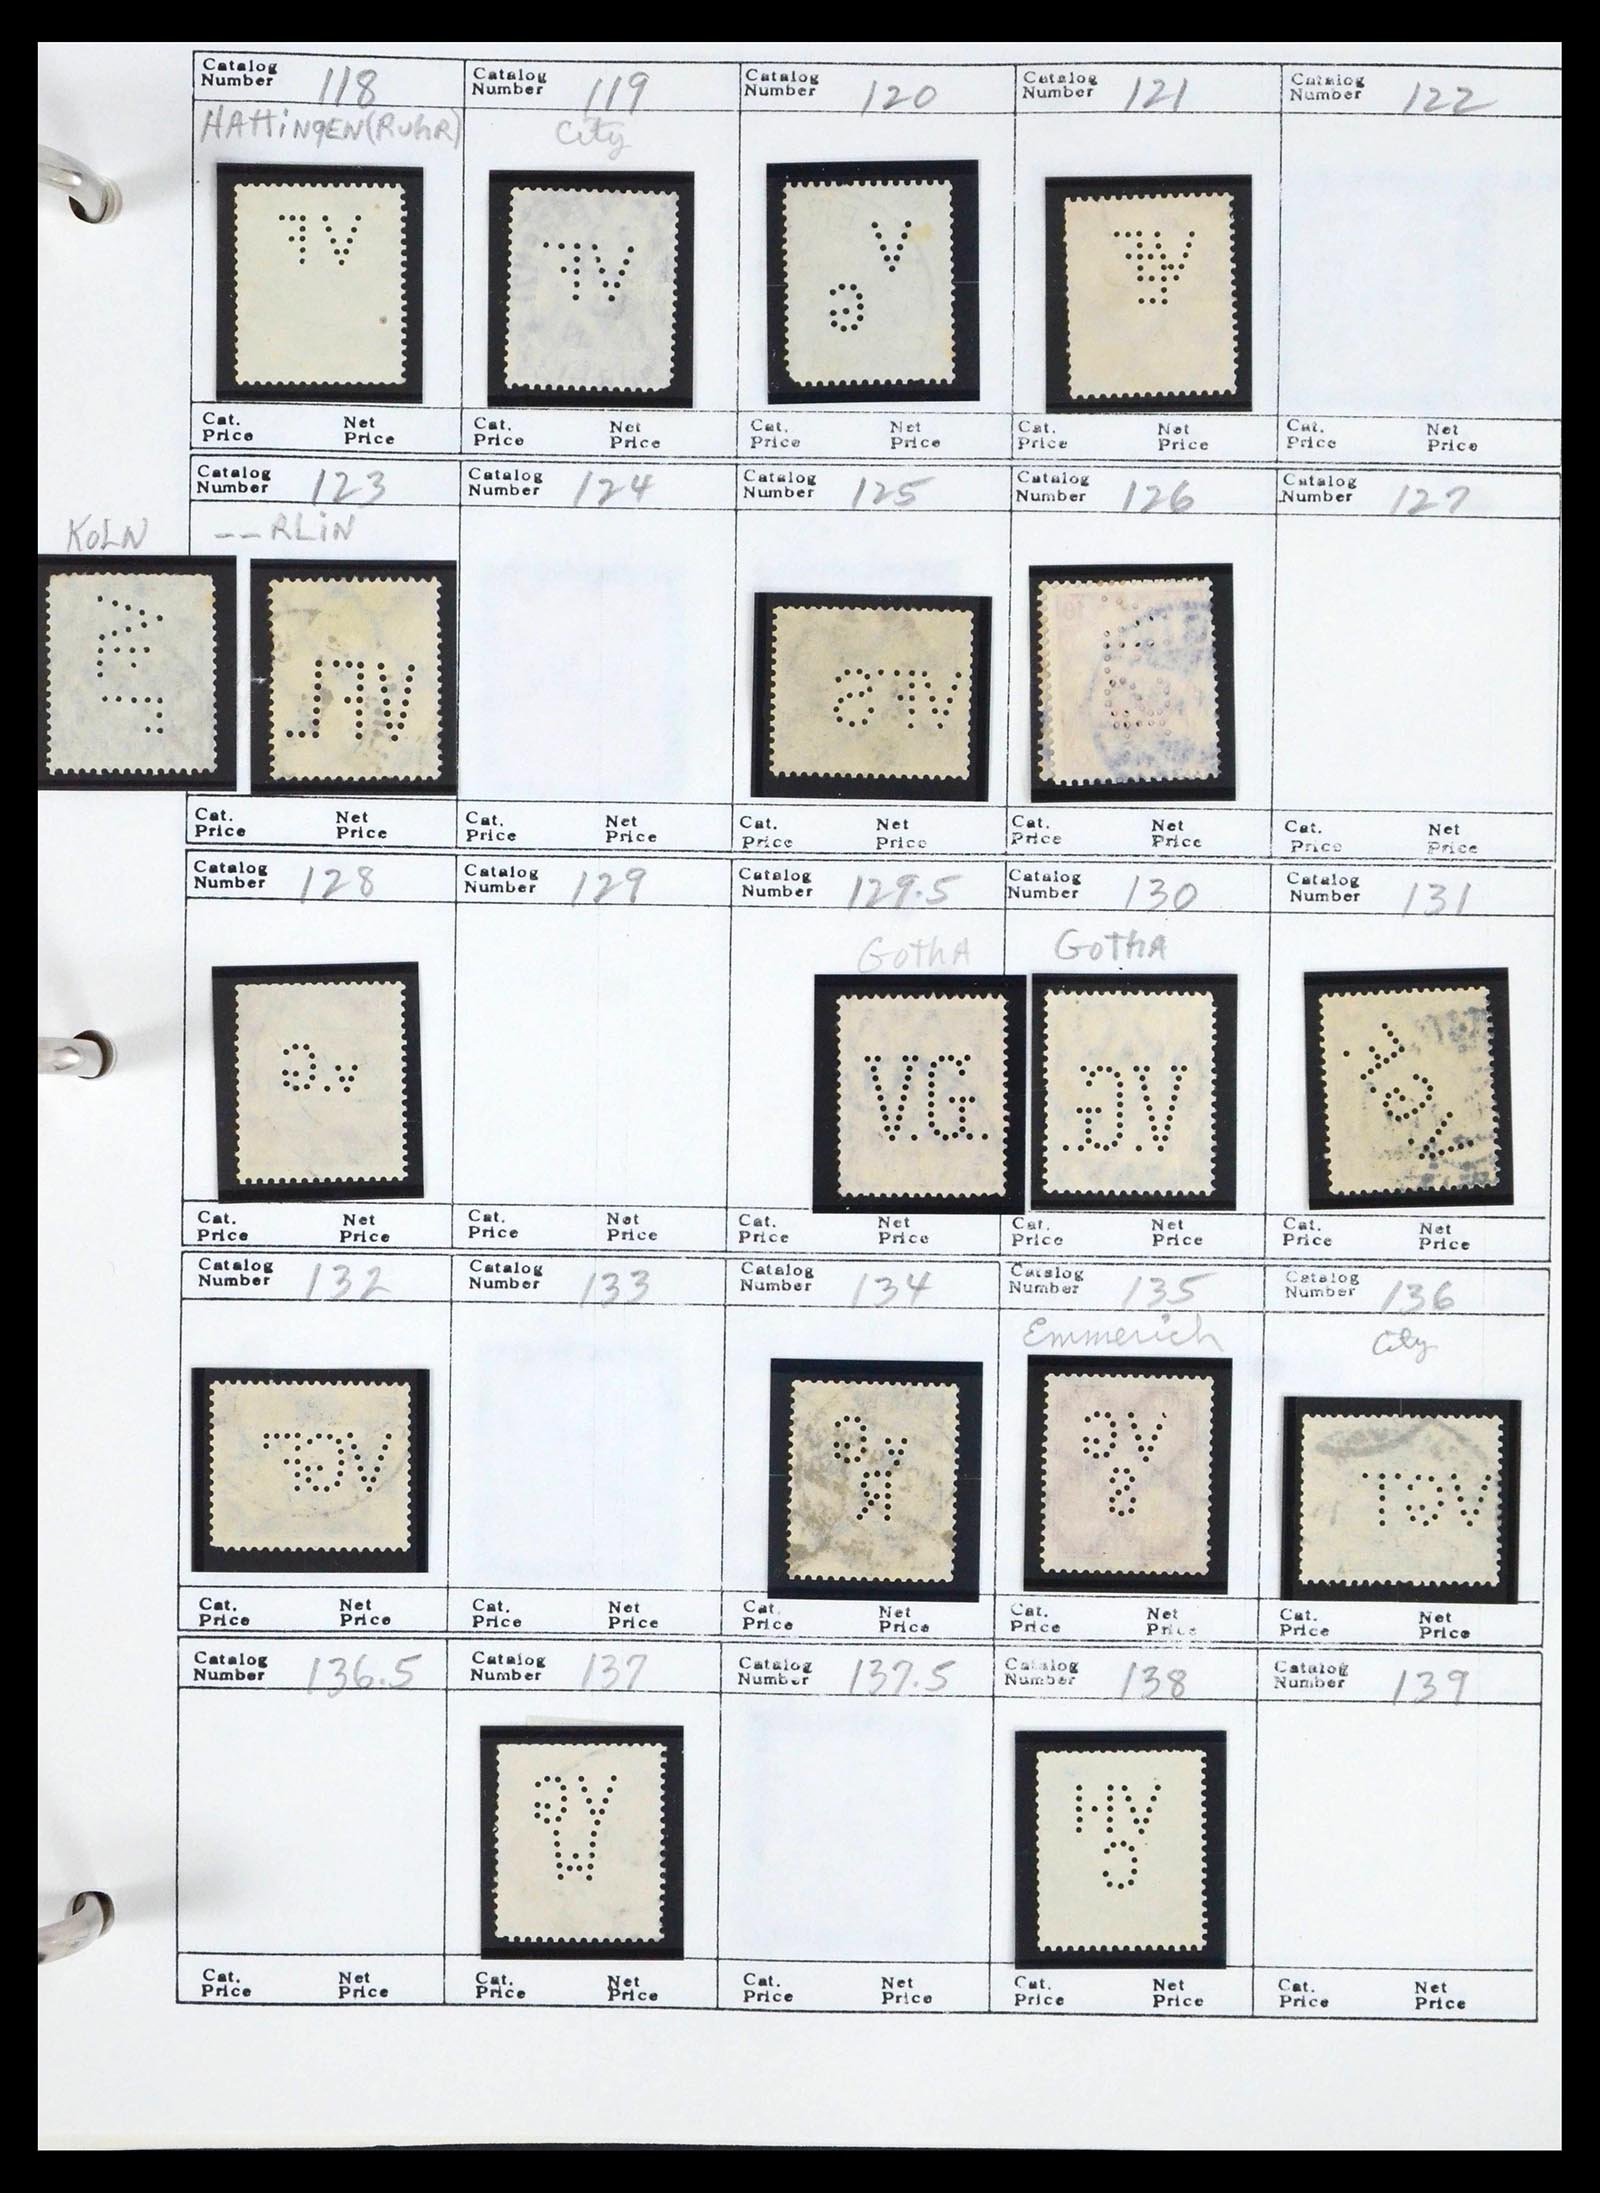 Catalog Number 118 Catalog Number 119 Catalog Number 120 Catalog Number 121 Catalog Number 122
HAttingEN(RuhR) City
Cat. Price Net Price Cat. Price Net Price Cat. Price Net Price Cat. Price Net Price Cat. Price Net Price
Catalog Number 123 Catalog Number 124 Catalog Number 125 Catalog Number 126 Catalog Number 127
KoLN __RLiN
Cat. Price Net Price Cat. Price Net Price Cat. Price Net Price Cat. Price Net Price Cat. Price Net Price
Catalog Number 128 Catalog Number 129 Catalog Number 129.5 Catalog Number 130 Catalog Number 131
GothA GothA
VG.
Cat. Price Net Price Cat. Price Net Price Cat. Price Net Price Cat. Price Net Price Cat. Price Net Price
Catalog Number 132 Catalog Number 133 Catalog Number 134 Catalog Number 135 Catalog Number 136
Emmerich City
Cat. Price Net Price Cat. Price Net Price Cat. Price Net Price Cat. Price Net Price Cat. Price Net Price
Catalog Number 136.5 Catalog Number 137 Catalog Number 137.5 Catalog Number 138 Catalog Number 139
Cat. Price Net Price Cat. Price Net Price Cat. Price Net Price Cat. Price Net Price Cat. Price Net Price